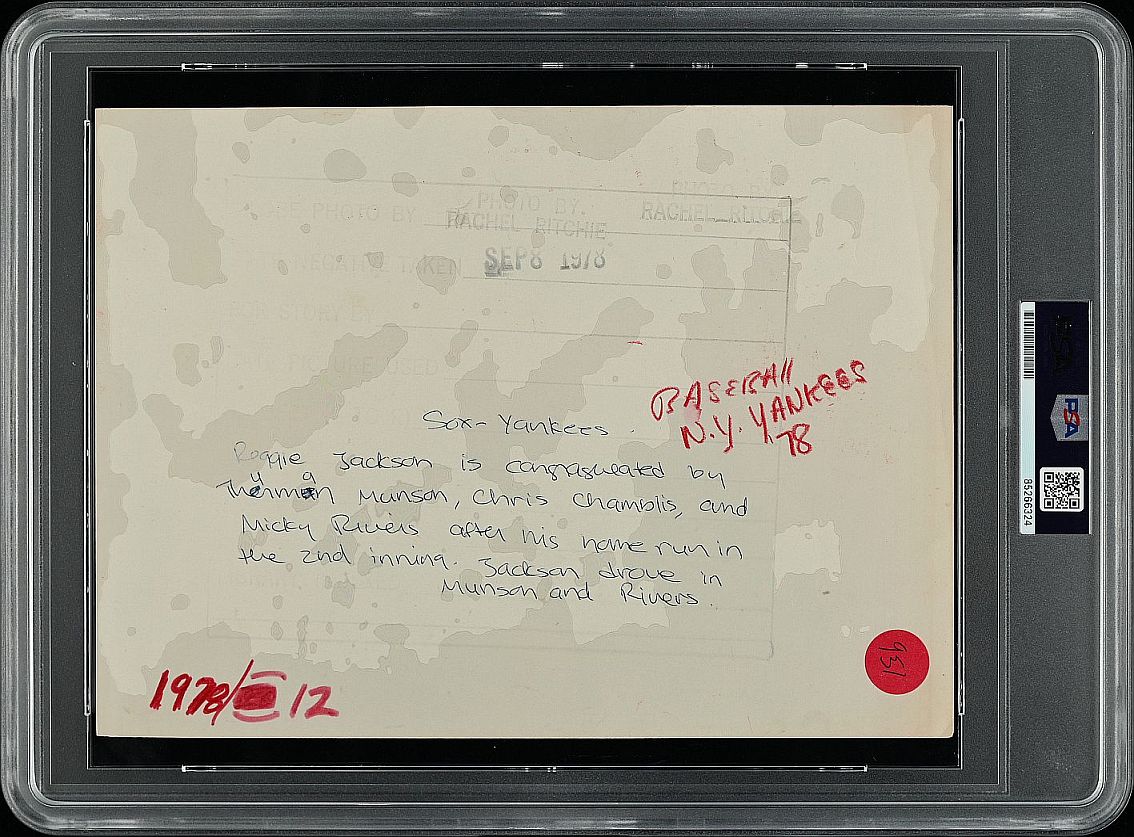 PHOTO BY
RACHEL RITCHIE
PHOTO BY
PHOTO BY.
RACHEL RITCHIE
NEGATIVE TAKEN
SEP 8 1978
STORY BY
BASEBAll
N.Y. YANKEES
78
Sox-Yankees
Reggie Jackson is congragulated by
Thurman Munson, Chris Chamblis, and
Micky Rivers after his home run in
the 2nd inning. Jackson drove in
Munson and Rivers.
1978/ 12
931
PSA
85266324